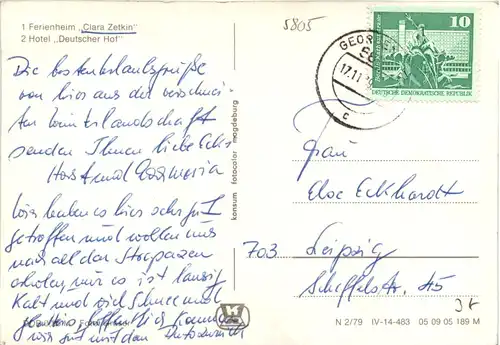 1 Ferienheim „Clara Zetkin"
2 Hotel „Deutscher Hof"
5805
GEORG
58
17.11.
c
10
DEUTSCHE DEMOKRATISCHE REPUBLIK
Die besten Urlaubsgrüße
von hier aus der verschnei-
ten Winterlandschaft
senden Ihnen liebe
Horst und Rosmaria
Wir haben es hier sehr gut
getroffen und wollen uns
nach all den Strapazen
erholen, nur es ist lausig
Kalt und viel Schnee und
hoffentlich kommen
wir gut mit dem
konsum fotocolor magdeburg
Frau
Else Eckhardt
703 Leipzig
Scheffelstr. 45
N 2/79 IV-14-483 05 09 05 189 M